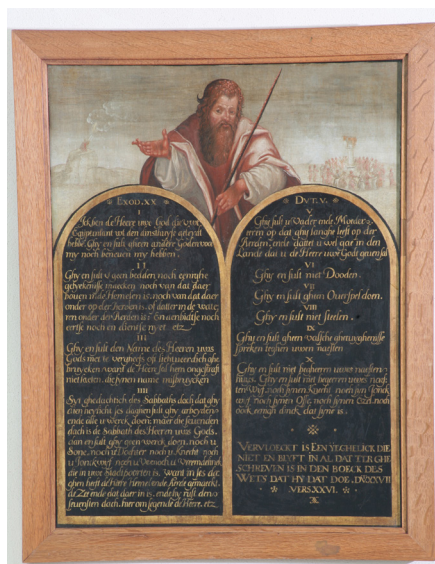 EXOD.XX
I
Ick ben de Heere uwe God die u wt
Egipten lant wt den diensthuyse
hebbe. Ghy en sult gheen ander Goden voor
my noch beneven my hebben.
II
Ghy en sult u geen beelden noch eenighe
gelyckenisse maecken noch van dat daer
boven in de Hemel en is: noch van dat daer
onder op der is: of datter in de wate-
ren onder der Aerden is: En aenbidtse noch
eertse noch en dientse nyet. etz
III
Ghy en sult den Name des Heeren uws
Gods niet te vergeefs
bruycken want de Heere sal hem ongestraft
niet laten. die synen name misbruycken
IIII
Syt ghedachtich des Sabbaths dach dat ghy
dien ses daghen sult ghy
ende alle u werck doen: maer die sevenden
dach is de Sabbath des Heeren uws Gods.
dan en sult ghy geen werck doen, noch u
Sone, noch u Dochter noch u Knecht noch
u noch u noch u Vremdelinck
die in uwe is. want in ses da-
ghen heeft de Here Hemel ende Aerde gemaeckt.
de Zee ende dat daer in is. ende hy rustede
sevensten dach. hierom segende de Heere. etz
DVT.V.
V
Ghy sult u Vader ende Moeder
eeren op dat ghy langhe lieft op der
Aerden, ende datter u wel gae in den
Lande dat u de Heere uwe Godt geven sal
VI
Ghy en sult niet Dooden.
VII
Ghy en sult gheen Overspel doen.
VIII
Ghy en sult niet stelen.
IX
Ghy en sult gheen valsche ghetuyghenisse
spreken teghen uwen naesten
X
Ghy en sult niet begheren uwes naesten
Huys. Ghy en sult niet begeren uwes naes-
ten Wyf, noch synen Knecht noch
noch synen Osse, noch synen Ezel, noch
oock eenich dinck, dat syne is.
VERVLOECKT IS EEN YEGHELICK DIE
NIET EN BLYFT IN AL DAT TER GHE
SCHREVEN IS IN DEN BOECK DES
WETS DAT HY DAT DOE. DEVT XXVII
VERS. XXVI.